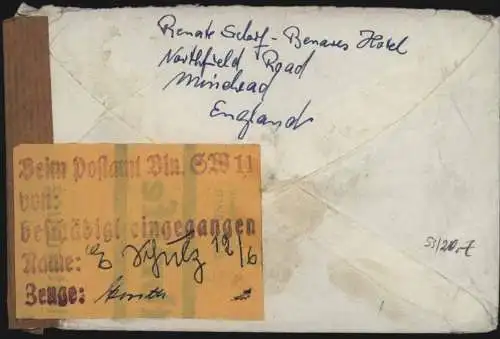 Renate Scharf - Benares Hotel
Northfield Road
Minehead
England
Beim Postamt Bln. SW 11
von:
beschädigt eingegangen
Name: E Schulz 12/6
Zeuge: